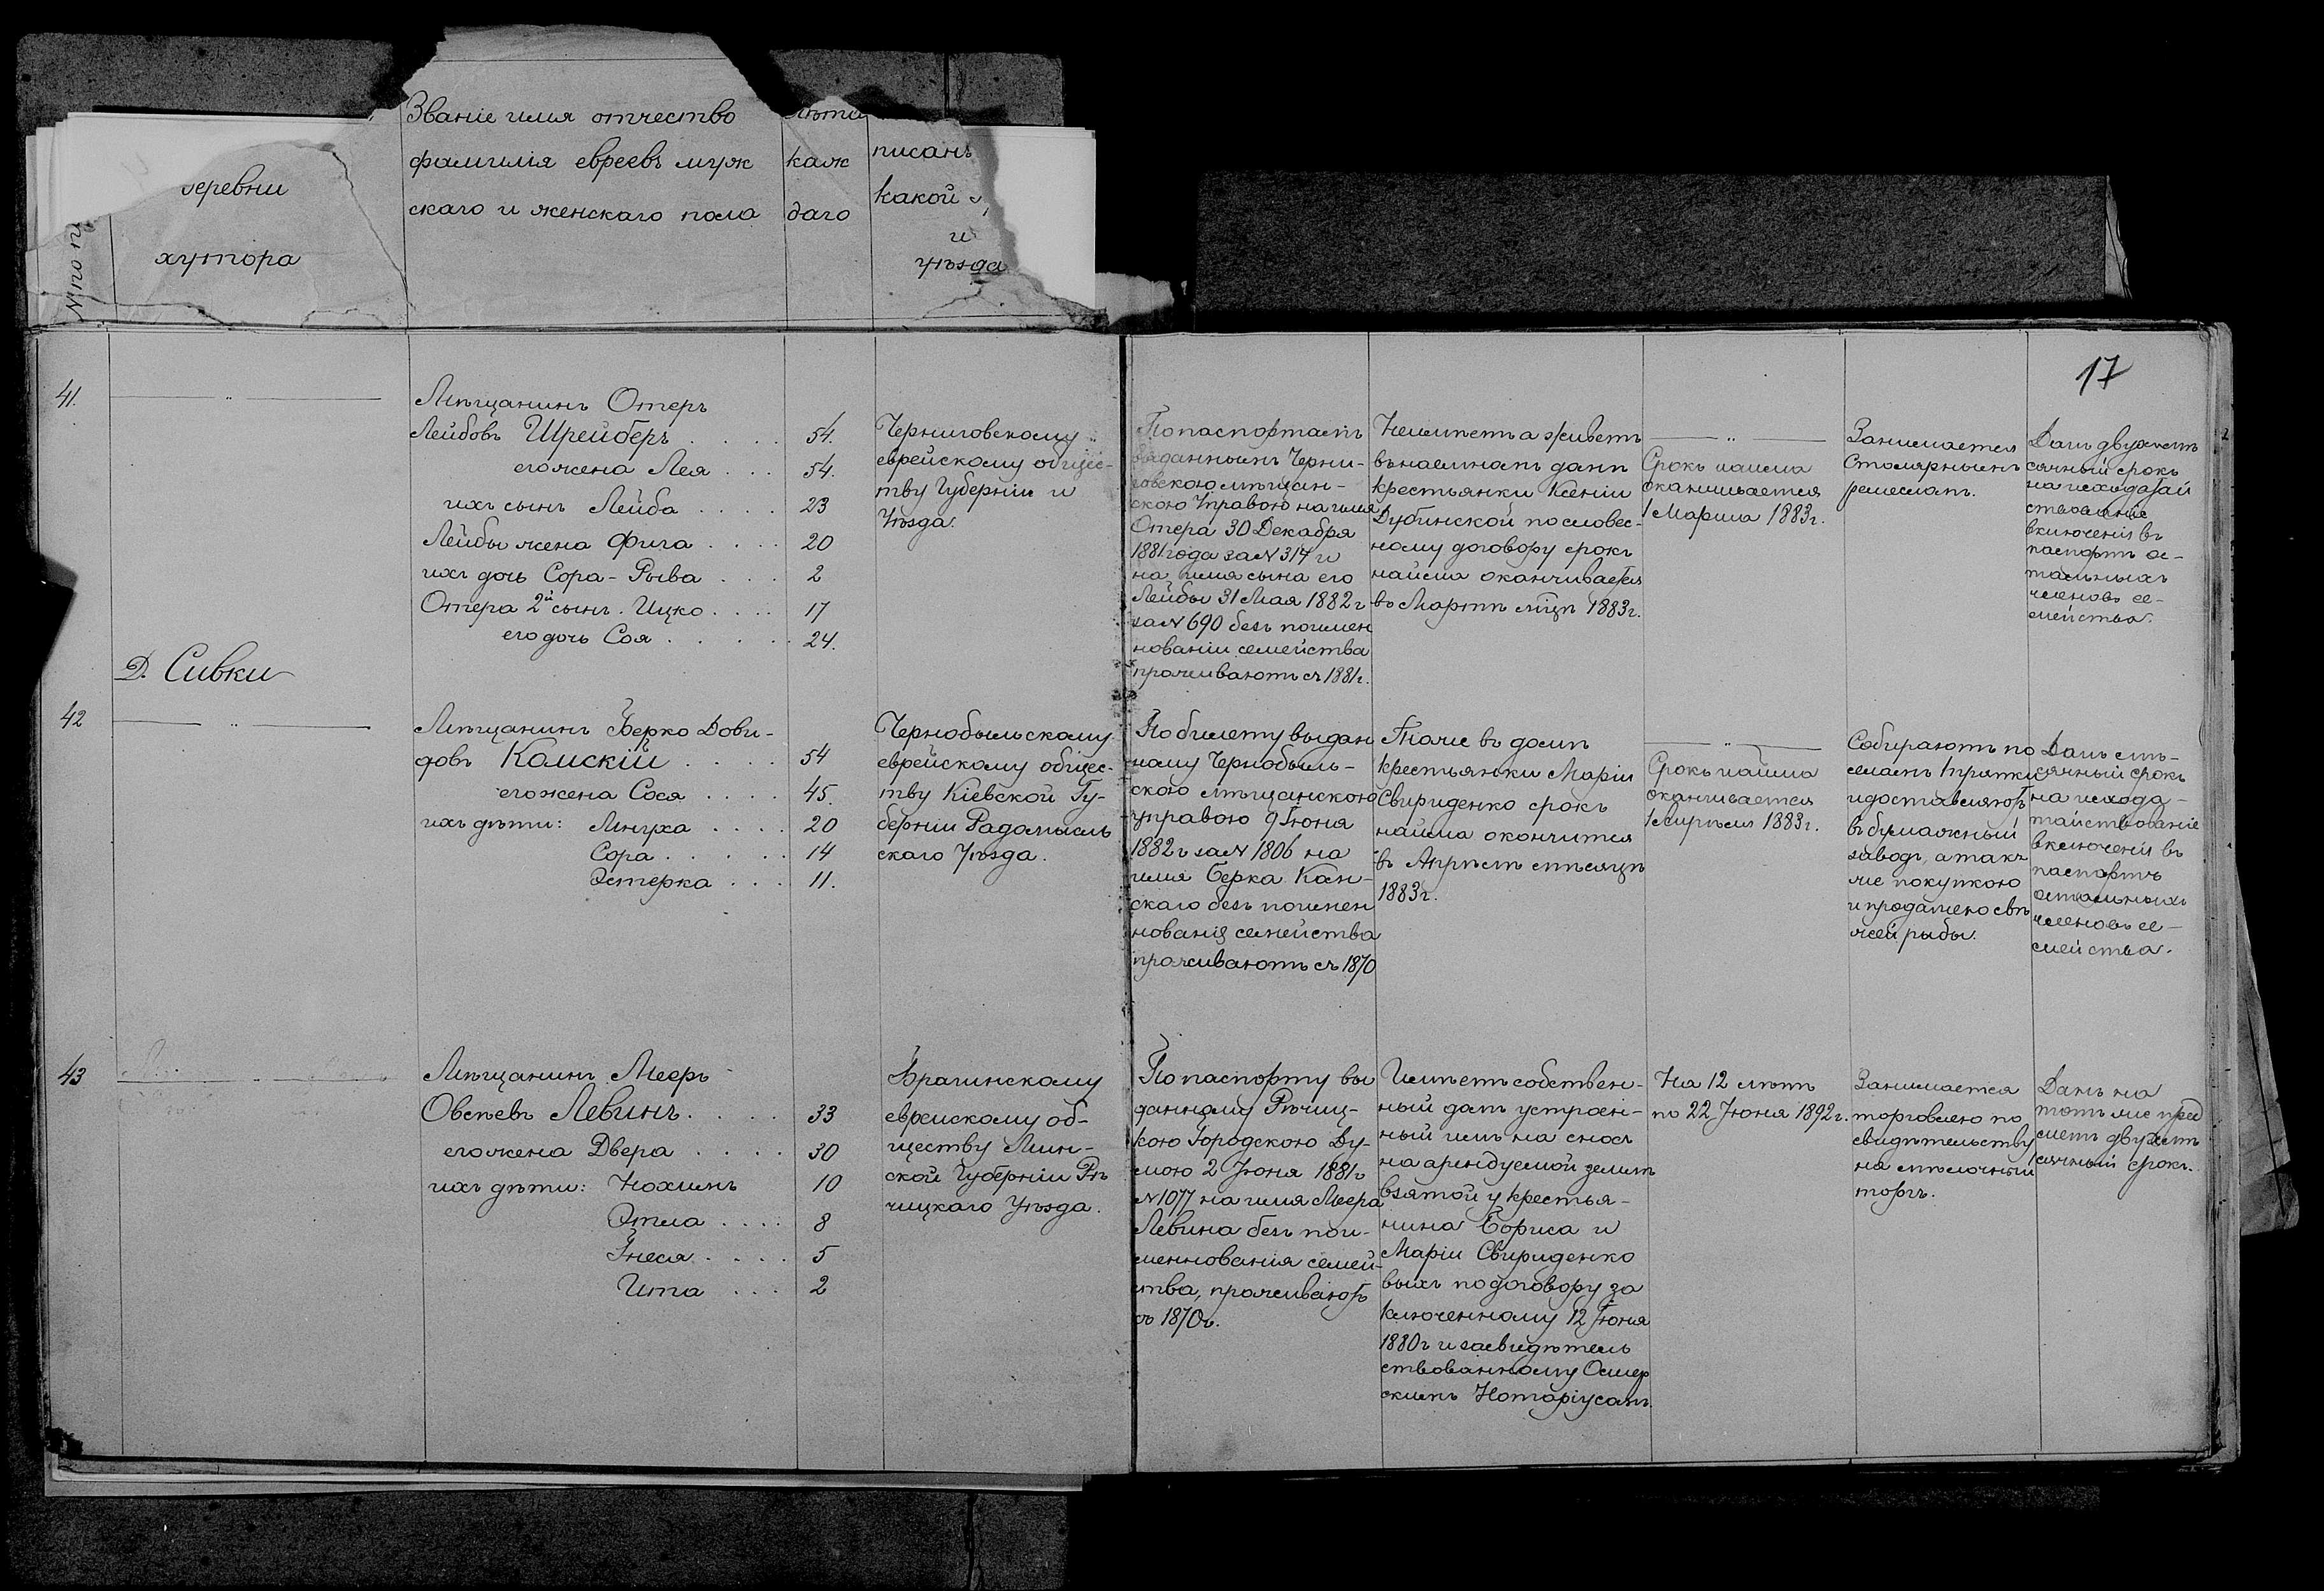 № по
деревни
хутора
Званіе имя отчество
фамилія евреевъ муж
скаго и женскаго пола
лѣта
каж
даго
писанъ
какой
и
уѣзда
17
41.
Мѣщанинъ Отеръ
Лейбовъ Шрейберъ . . . . 54.
его жена Лея . . . 54.
ихъ сынъ Лейба . . . . 23
Лейбы жена Фига . . . . 20
ихъ дочь Сора-Рыва . . . 2
Отера 2й сынъ Ицко . . . . 17
его дочь Соя . . . . . 24.
Черниговскому
еврейскому общес-
тву Губерніи и
Уѣзда.
По паспортамъ
выданнымъ Черни-
говскою мѣщан-
скою Управою на имя
Отера 30 Декабря
1881 года за № 314 и
на имя сына его
Лейбы 31 Мая 1882 г
за № 690 безъ поимен
нованіи семейства
проживаютъ съ 1881 г.
Неимѣетъ а живетъ
въ наемномъ домѣ
крестьянки Ксеніи
Дубинской по словес-
ному договору срокъ
найма оканчивается
въ Мартѣ мцѣ 1883 г.
Срокъ найма
оканчивается
1 Марта 1883 г.
Занимается
Столярнымъ
ремесломъ.
Данъ двухмѣ
сячный срокъ
на исходатай
ствованіе
включенія въ
паспортъ ос-
тальныхъ
членовъ се-
мейства.
Д. Сивки
42
Мѣщанинъ Берко Дови-
довъ Камскій . . . . 54
его жена Сося . . . . 45.
ихъ дѣти: Мнуха . . . . 20
Сора . . . . . 14
Эстерка . . . 11.
Чернобыльскому
еврейскому общес-
тву Кіевской Гу-
берніи Радомысль
скаго Уѣзда.
По билету выдан
ному Чернобыль-
скою мѣщанскою
управою 9 Іюня
1882 г за № 1806 на
имя Берка Кан-
скаго безъ поимен
нованія семейства
проживаютъ съ 1870
Тоже въ домѣ
крестьянки Маріи
Свириденко срокъ
найма окончится
въ Апрѣлѣ мѣсяцѣ
1883 г.
Срокъ найма
оканчивается
1 Апрѣля 1883 г.
Собираютъ по
селамъ тряпки
и доставляютъ
въ бумажный
заводъ, а так
же покупкою
и продажею свѣ
жей рыбы.
Данъ мѣ-
сячный срокъ
на исхода-
тайствованіе
включенія въ
паспортъ
остальныхъ
членовъ се-
мейства.
43
Мѣщанинъ Мееръ
Овсѣевъ Левинъ . . . . 33
его жена Двера . . . . 30
ихъ дѣти: Нохимъ 10
Этла . . . . 8
Гнеся . . . . 5
Ита . . . 2
Брагинскому
еврейскому об-
ществу Мин-
ской Губерніи Рѣ
чицкаго Уѣзда.
По паспорту вы
данному Рѣчиц-
кою Городскою Ду-
мою 2 Іюня 1881 г
№ 1077 на имя Меера
Левина безъ пои-
менованія семей-
ства, проживаютъ
съ 1870 г.
Имѣетъ собствен-
ный домъ устроен-
ный имъ на сносъ
на арендуемой землѣ
взятой у крестья-
нина Бориса и
Маріи Свириденко
выхъ по договору за
ключенному 12 Іюня
1880 г и засвидѣтель
ствованному Остер
скимъ Нотаріусомъ.
На 12 лѣтъ
по 22 Іюня 1892 г.
Занимается
торговлею по
свидѣтельству
на мѣлочный
торгъ.
Данъ на
тотъ же пред
метъ двухмѣ
сячный срокъ.